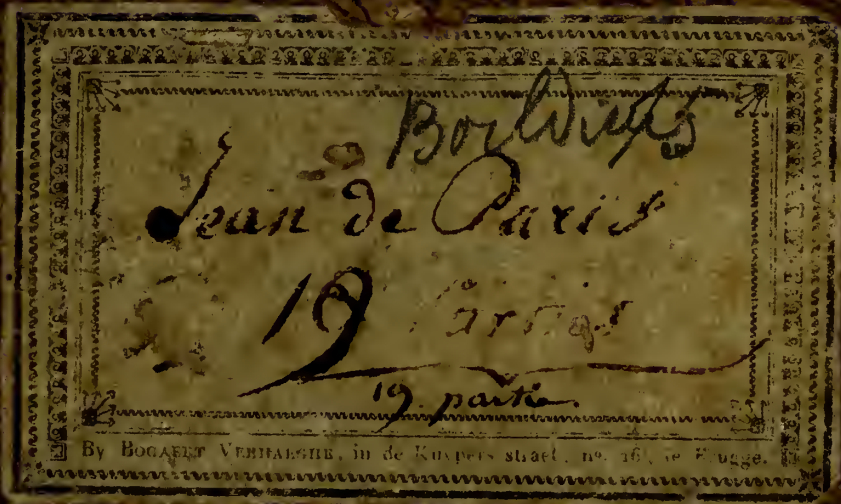 Jean de Paris
19 Parties
19 partie
By BOGAERT VERHAEGHE, in de Kuypers straet, nº. 16, te Brugge.